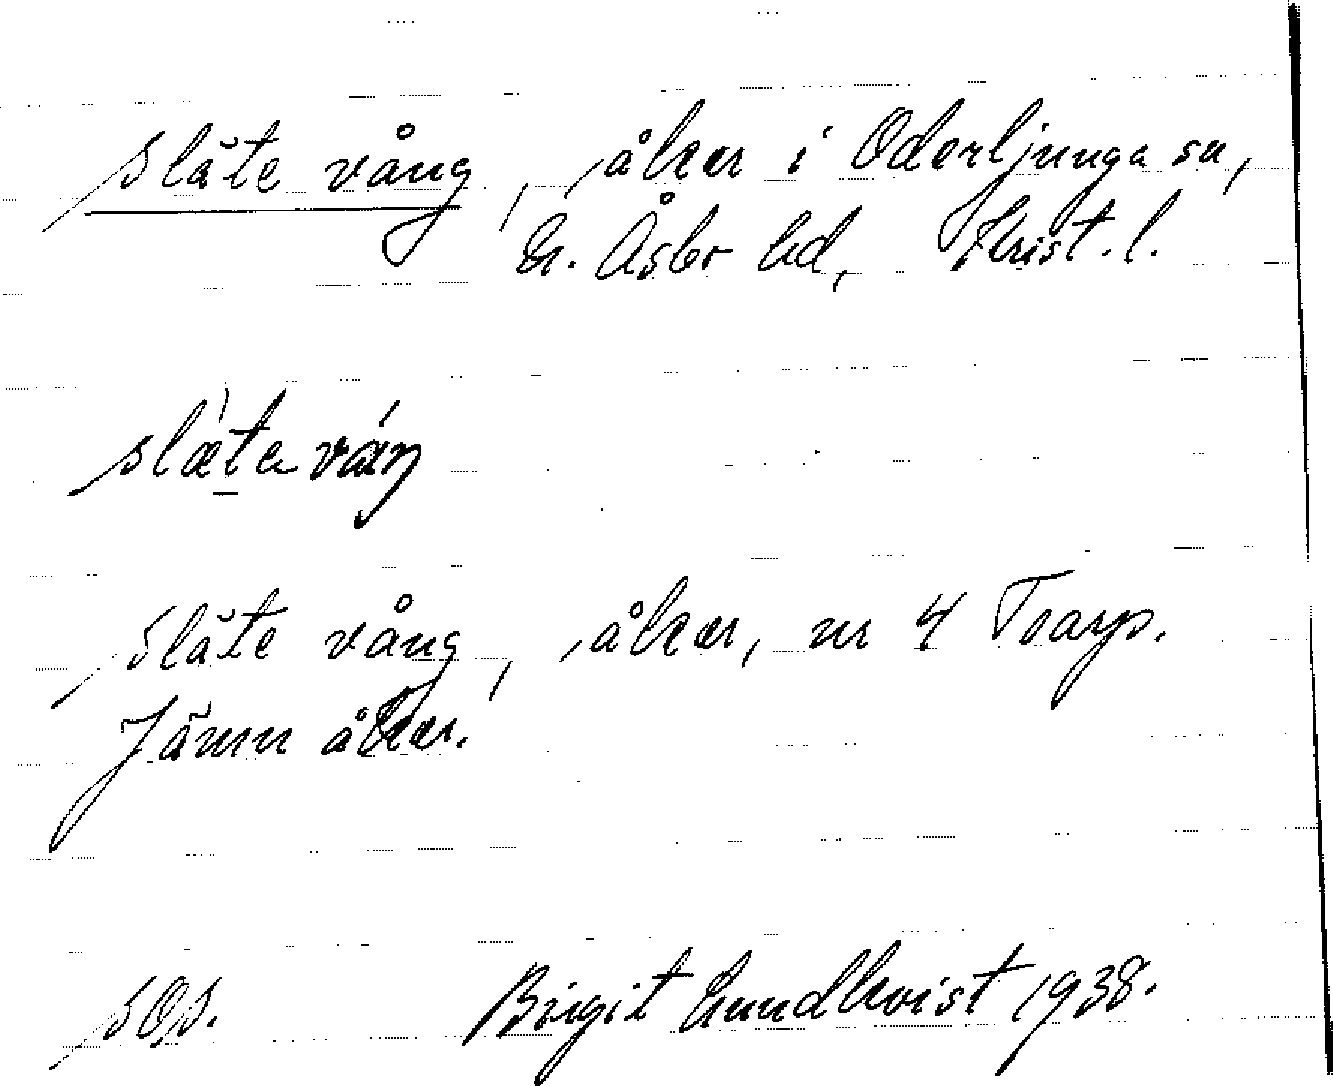 Släte vång, åker i Oderljunga sn,
N. Åsbo hd, Krist. l.
Släte vång, åker, nr 4 Toarp.
Jämn åker.
sOs. Birgit Lundkvist 1938.